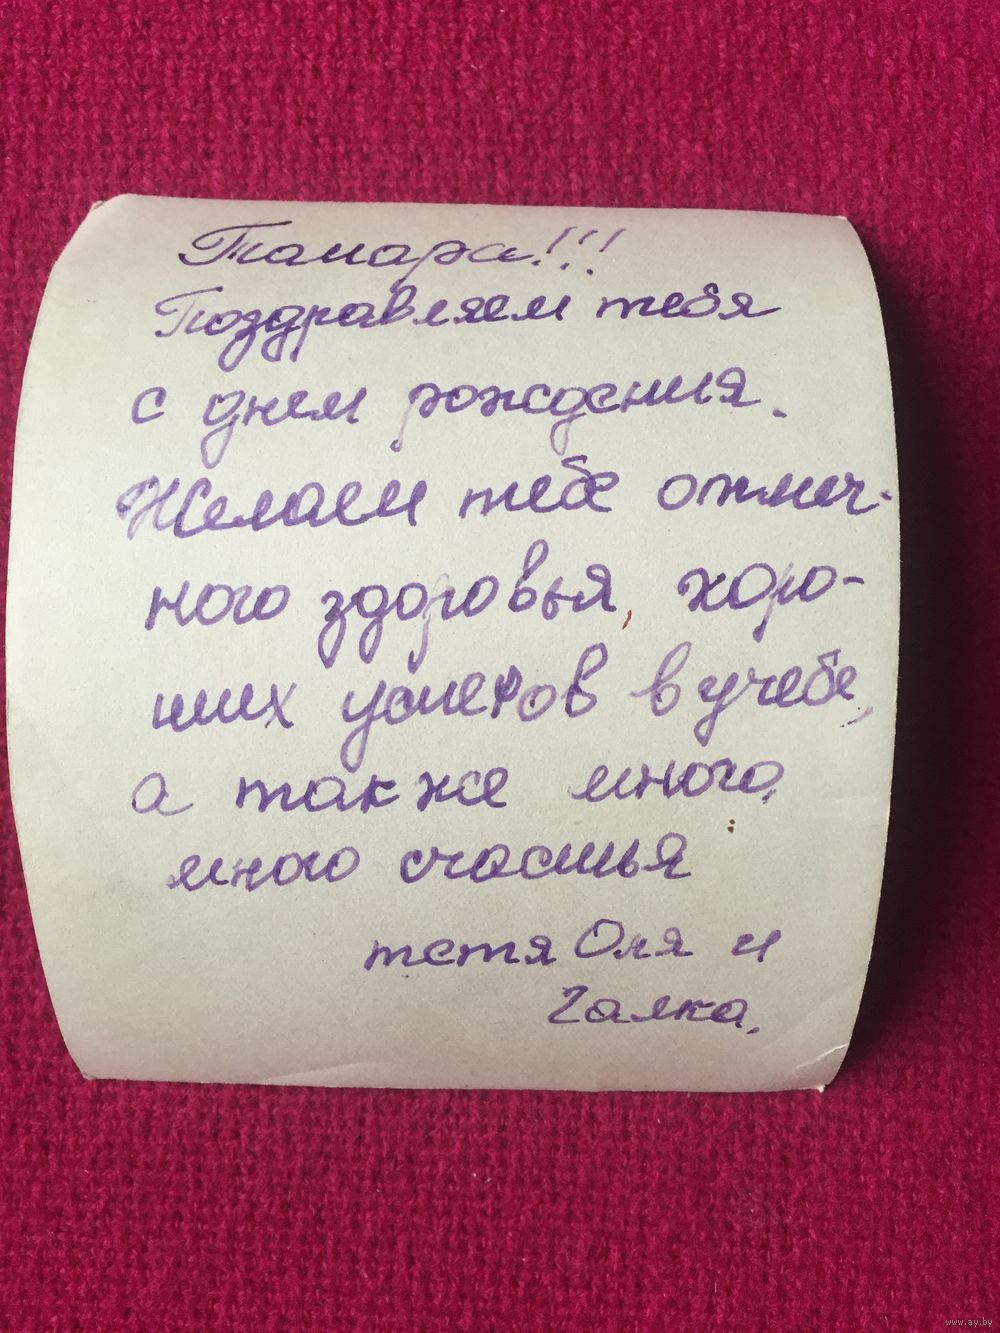 Тамара!!!
Поздравляем тебя
с днем рождения.
Желаем тебе отлич-
ного здоровья, хоро-
ших успехов в учебе,
а также много,
много счастья
тетя Оля и
Галка.
www.ay.by